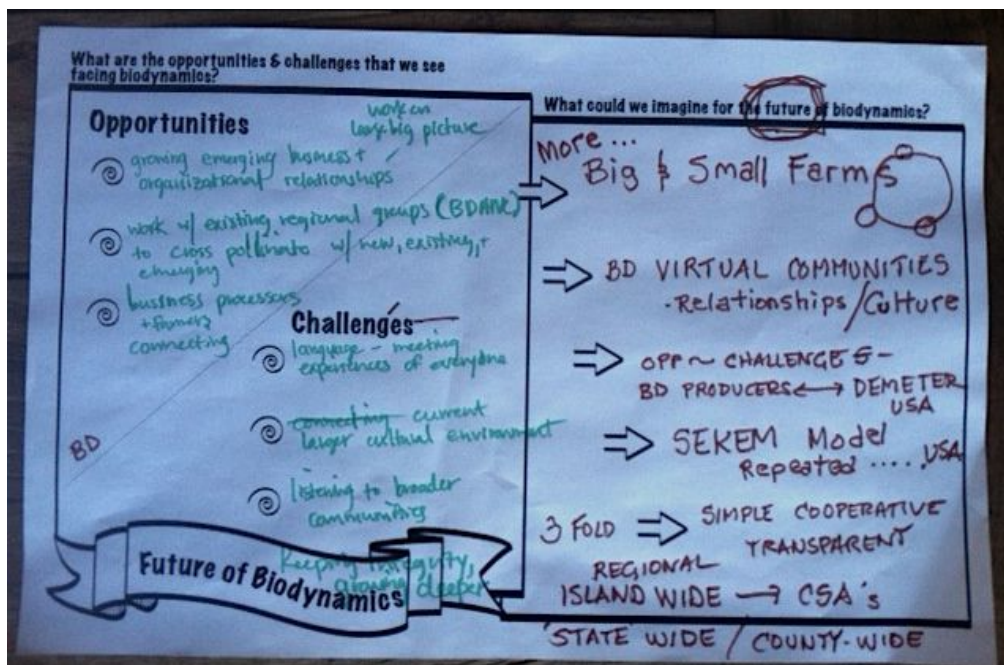 What are the opportunities & challenges that we see
facing biodynamics?
Opportunities
work on
big picture
growing emerging business +
organizational relationships
work w/ existing regional groups (BDANC)
to cross pollinate w/ new, existing, +
emerging
business processors
+ farmers
connecting
BD
Challenges
language - meeting
experiences of everyone
connecting current
larger cultural environment
listening to broader
communities
Keeping integrity,
growing deeper
Future of Biodynamics
What could we imagine for the future of biodynamics?
More ...
Big & Small Farms
BD VIRTUAL COMMUNITIES
- Relationships / Culture
OPP ~ CHALLENGES -
BD PRODUCERS ↔ DEMETER
USA
SEKEM Model
Repeated ..... USA
3 FOLD ⇒ SIMPLE COOPERATIVE
TRANSPARENT
REGIONAL
ISLAND WIDE → CSA's
'STATE' WIDE / COUNTY-WIDE